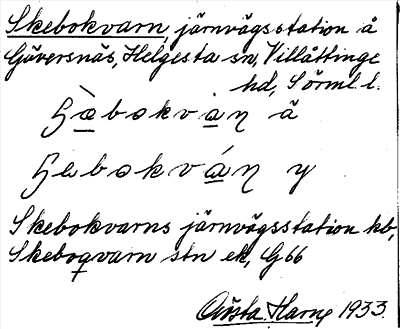 Skebokvarn, järnvägsstation å
Gäversnäs, Helgesta sn, Villåttinge
hd, Sörml. l.
ꞕèbokvȧɳ ä
ꞕebokváɳ y
Skebokvarns järnvägsstation kb,
Skeboqvarn stn ek, G66
Gösta Harne 1933.